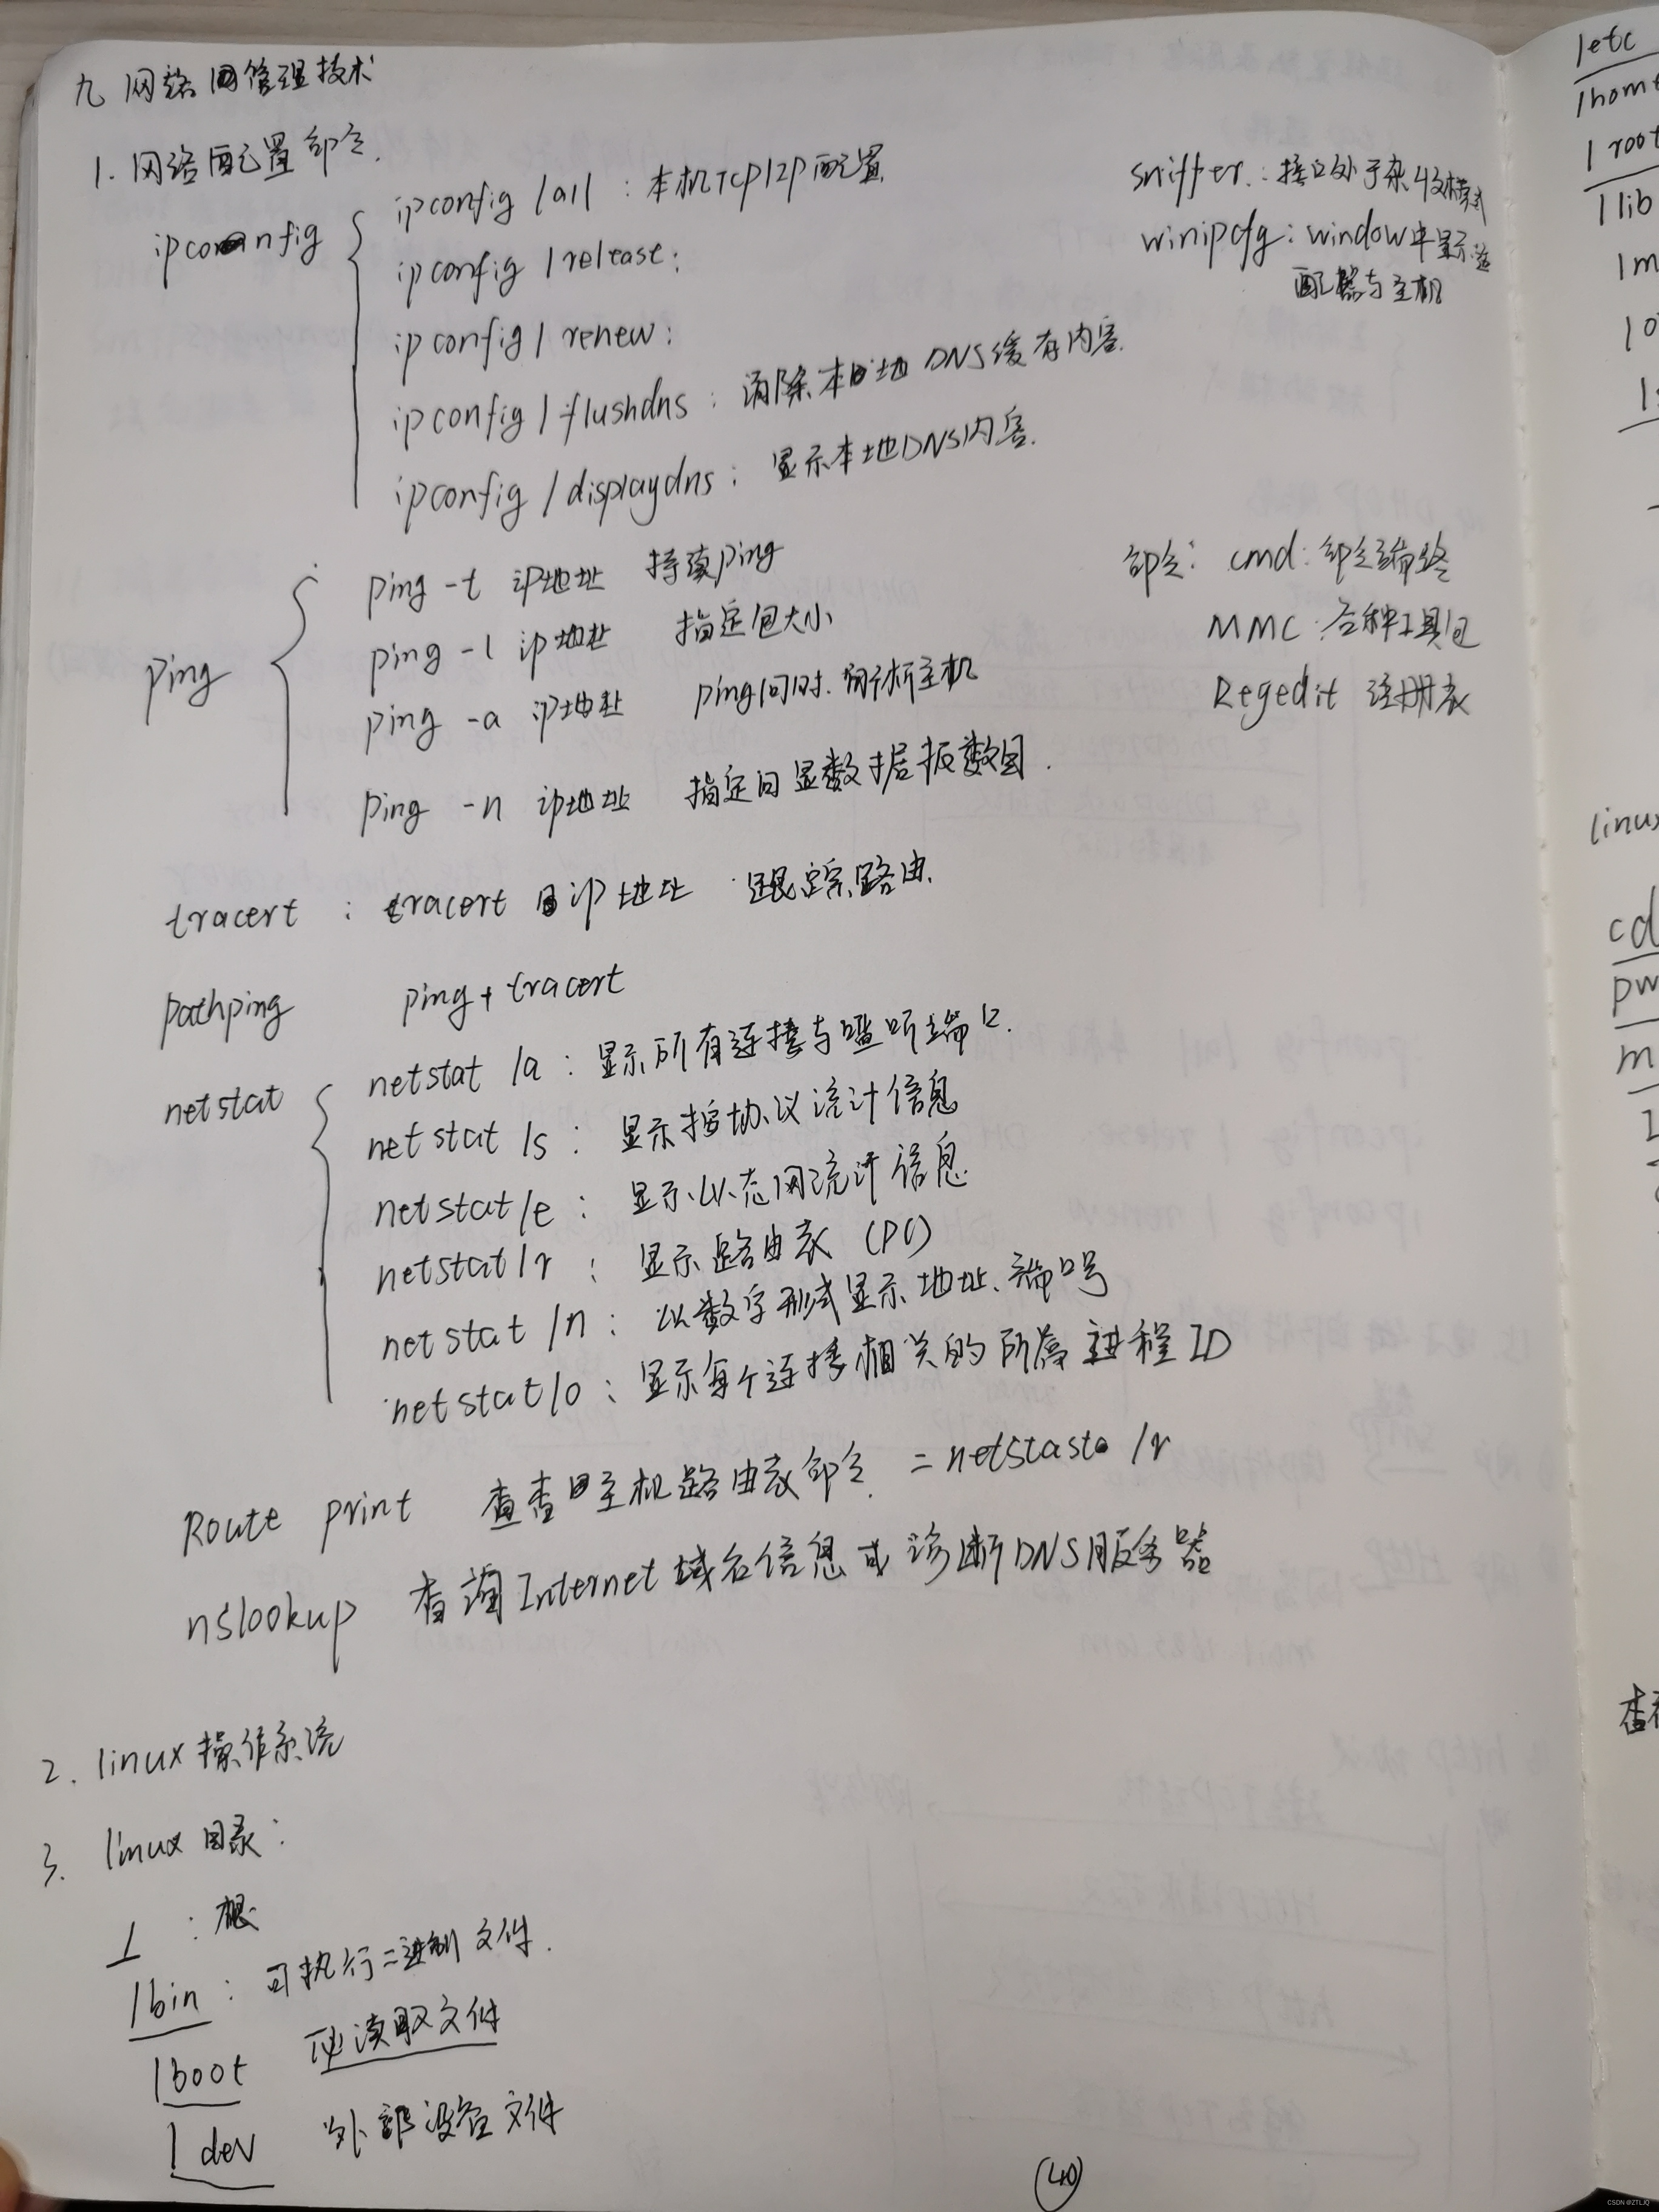 九 网络管理技术
1. 网络配置命令.
ipconfig
ipconfig /all : 本机TCP/IP配置
ipconfig /release:
ipconfig / renew:
ipconfig / flushdns : 清除本地DNS缓存内容.
ipconfig / displaydns : 显示本地DNS内容.
sniffer. : 接口处于杂收模式
winipcfg : window中显示适
配器与主机
ping
ping -t ip地址 持续ping
ping -l ip地址 指定包大小
ping -a ip地址 ping同时. 解析主机
ping -n ip地址 指定回显数据报数目.
命令: cmd: 命令端终
MMC: 各种工具包
Regedit 注册表
tracert : tracert ip地址 跟踪路由.
pathping ping + tracert
netstat
netstat /a : 显示所有连接与监听端口.
netstat /s : 显示按协议统计信息
netstat /e : 显示以态网统计信息
netstat /r : 显示路由表 (PC)
netstat /n : 以数字形式显示地址、端口号
netstat /o : 显示每个连接相关的所属进程ID
Route print 查看主机路由表命令. = netstast /r
nslookup 查询Internet域名信息或诊断DNS服务器
2. linux操作系统
3. linux目录:
/ : 根
/bin : 可执行二进制文件.
/boot 必读取文件
/dev 外部设备文件
(40)
/etc
/root
/lib
cd
CSDN @ZTLJQ